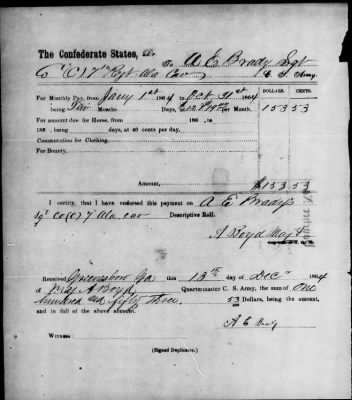 The Confederate States, Dr.
To A E Brady Sgt
Co (C) 7th Regt Ala Cav C. S. Army.
DOLLARS. CENTS.
For Monthly Pay, from Jany 1st 1864 to Oct 31st 1864
being Ten Months, Days, per Month. 153 53
For amount due for Horse, from 186 , to
186 , being days, at 40 cents per day,
Commutation for Clothing,
For Bounty,
Amount, $ 153 53
I certify, that I have endorsed this payment on A E Brady's
Co (C) 7 Ala Cav Descriptive Roll.
A Boyd Maj &
Received Greensboro Ga this 13th day of Decr 1864
of Maj A Boyd, Quartermaster C. S. Army, the sum of One
hundred and fifty Three 53 Dollars, being the amount,
and in full of the above account.
A E Brady
Witness
(Signed Duplicates.)